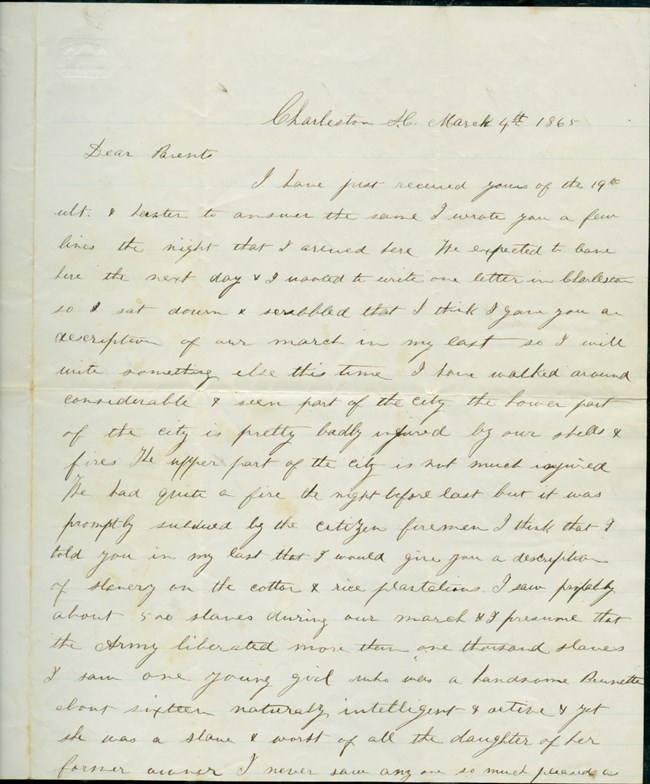 Charleston S.C. March 4th 1865
Dear Parents
I have just received yours of the 19th
ult. & hasten to answer the same I wrote you a few
lines the night that I arived here We expected to leave
here the next day & I wanted to write one letter in Charleston
so I sat down & scrabbled that I think I gave you a
description of our march in my last so I will
write something else this time I have walked around
considerable & seen part of the city the lower part
of the city is pretty badly injured by our shells &
fires The upper part of the city is not much injured
We had quite a fire the night before last but it was
promptly subdued by the citizen firemen I think that I
told you in my last that I would give you a description
of slavery on the cotton & rice plantations. I saw probably
about 500 slaves during our march & I presume that
the Army liberated more than one thousand slaves
I saw one young girl who was a handsome Brunette
about sixteen naturaly intelligent & active & yet
she was a slave & worst of all the daughter of her
former owner I never saw any one so much pleased a